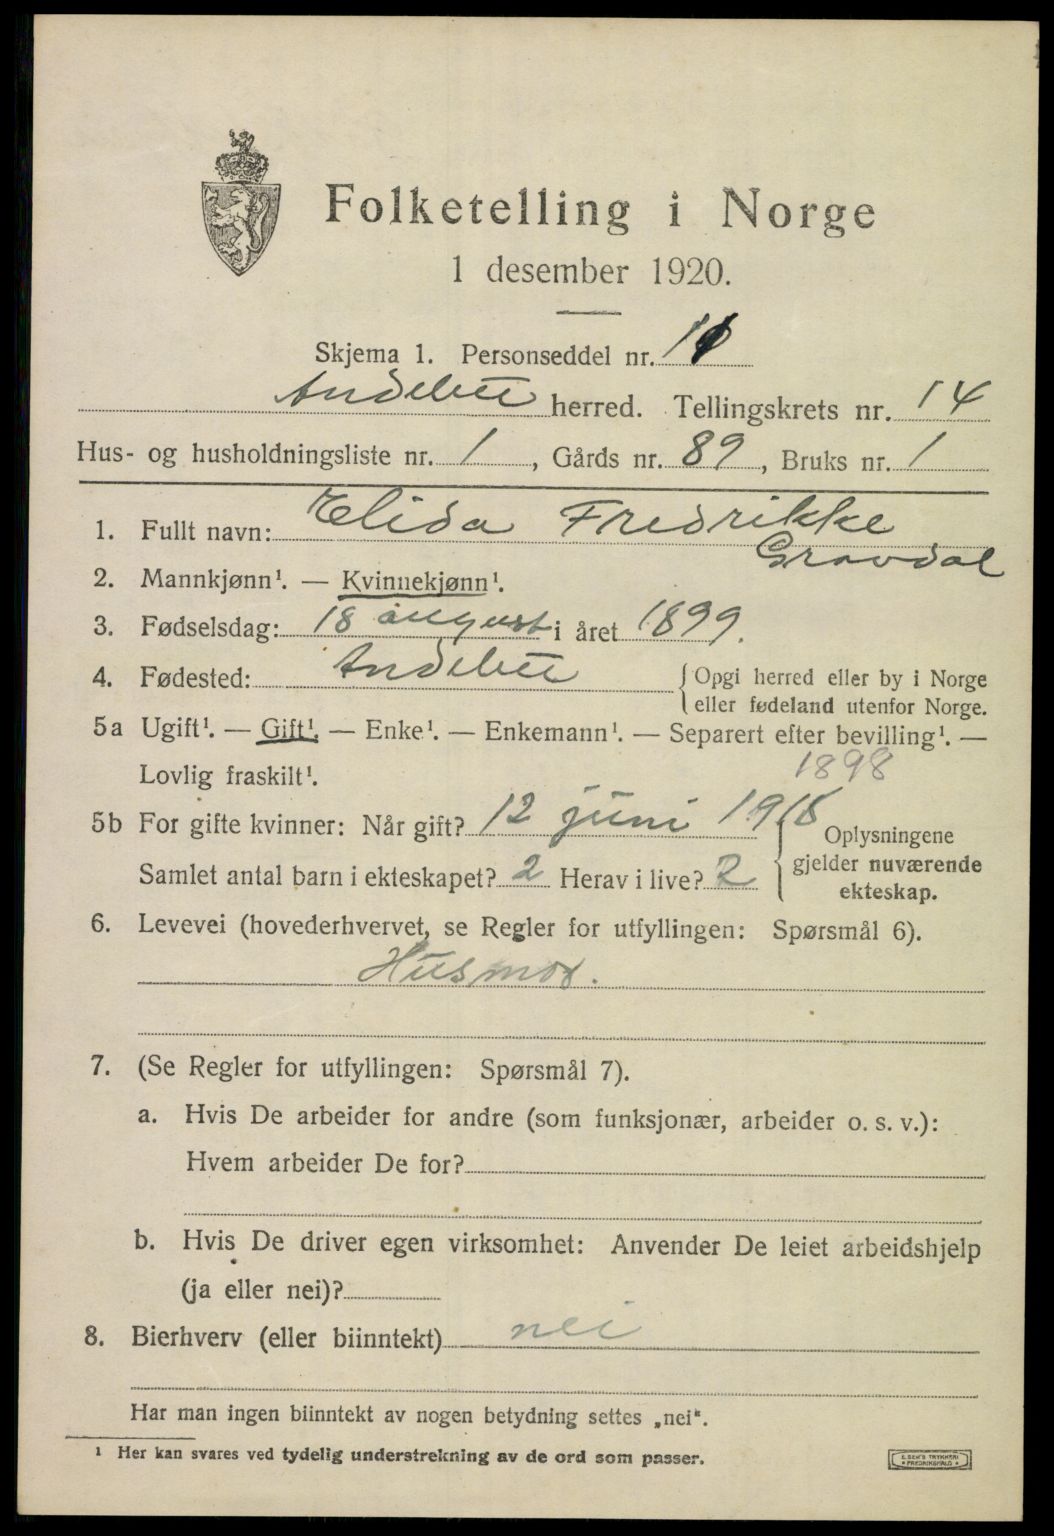 Folketelling i Norge
1 desember 1920.
Skjema 1. Personseddel nr.
Andebu herred. Tellingskrets nr. 14
Hus- og husholdningsliste nr. 1, Gårds nr. 89, Bruks nr. 1
1. Fullt navn: Elida Fredrikke
Gravdal
2. Mannkjønn¹. — Kvinnekjønn¹.
3. Fødselsdag: 18 august i året 1899.
4. Fødested: Andebu {Opgi herred eller by i Norge
eller fødeland utenfor Norge.
5a Ugift¹. — Gift¹. — Enke¹. — Enkemann¹. — Separert efter bevilling¹. —
Lovlig fraskilt¹.
1898
5b For gifte kvinner: Når gift? 12 juni {Oplysningene
gjelder nuværende
ekteskap.
Samlet antal barn i ekteskapet? 2 Herav i live? 2
6. Levevei (hovederhvervet, se Regler for utfyllingen: Spørsmål 6).
Husmor.
7. (Se Regler for utfyllingen: Spørsmål 7).
a. Hvis De arbeider for andre (som funksjonær, arbeider o. s. v.):
Hvem arbeider De for?
b. Hvis De driver egen virksomhet: Anvender De leiet arbeidshjelp
(ja eller nei)?
8. Bierhverv (eller biinntekt) nei
Har man ingen biinntekt av nogen betydning settes „nei“.
¹ Her kan svares ved tydelig understrekning av de ord som passer.
E. SEM'S TRYKKERI
• FREDRIKSHALD •